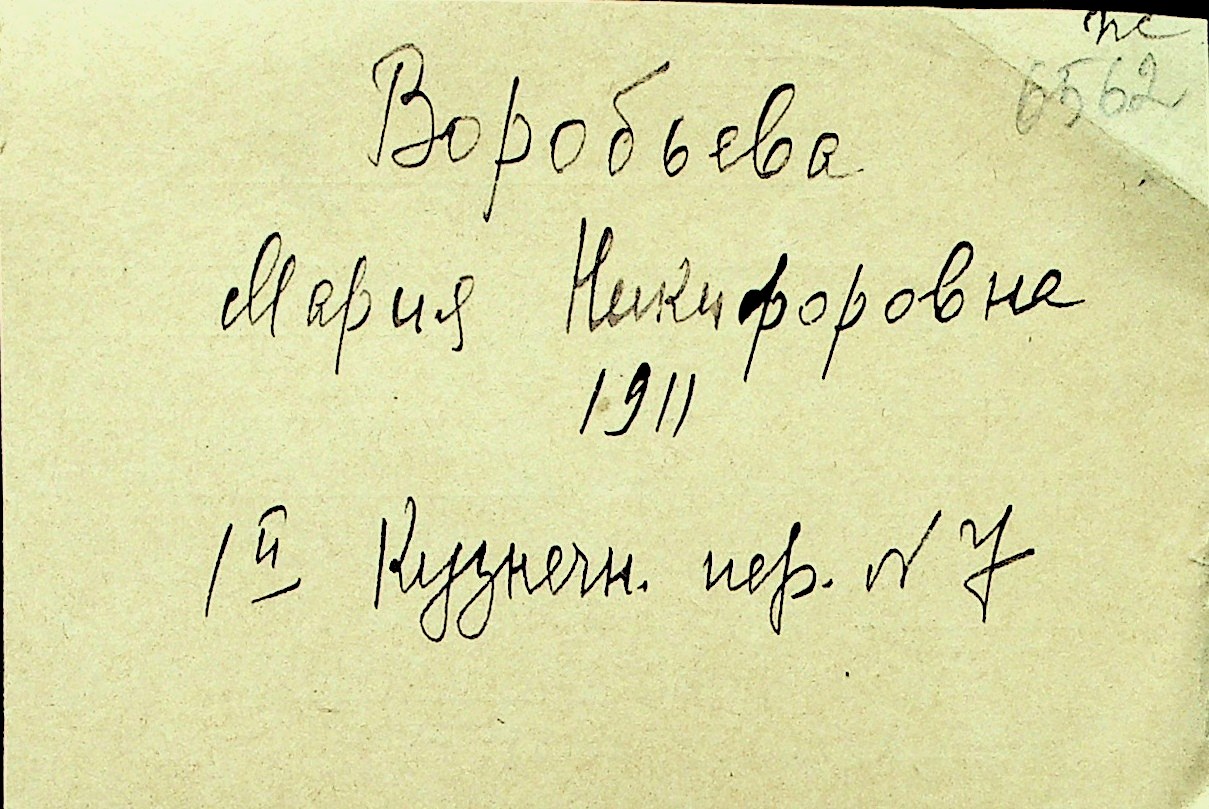 пс
6562
Воробьева
Мария Никифоровна
1911
1й Кузнечн. пер. N 7